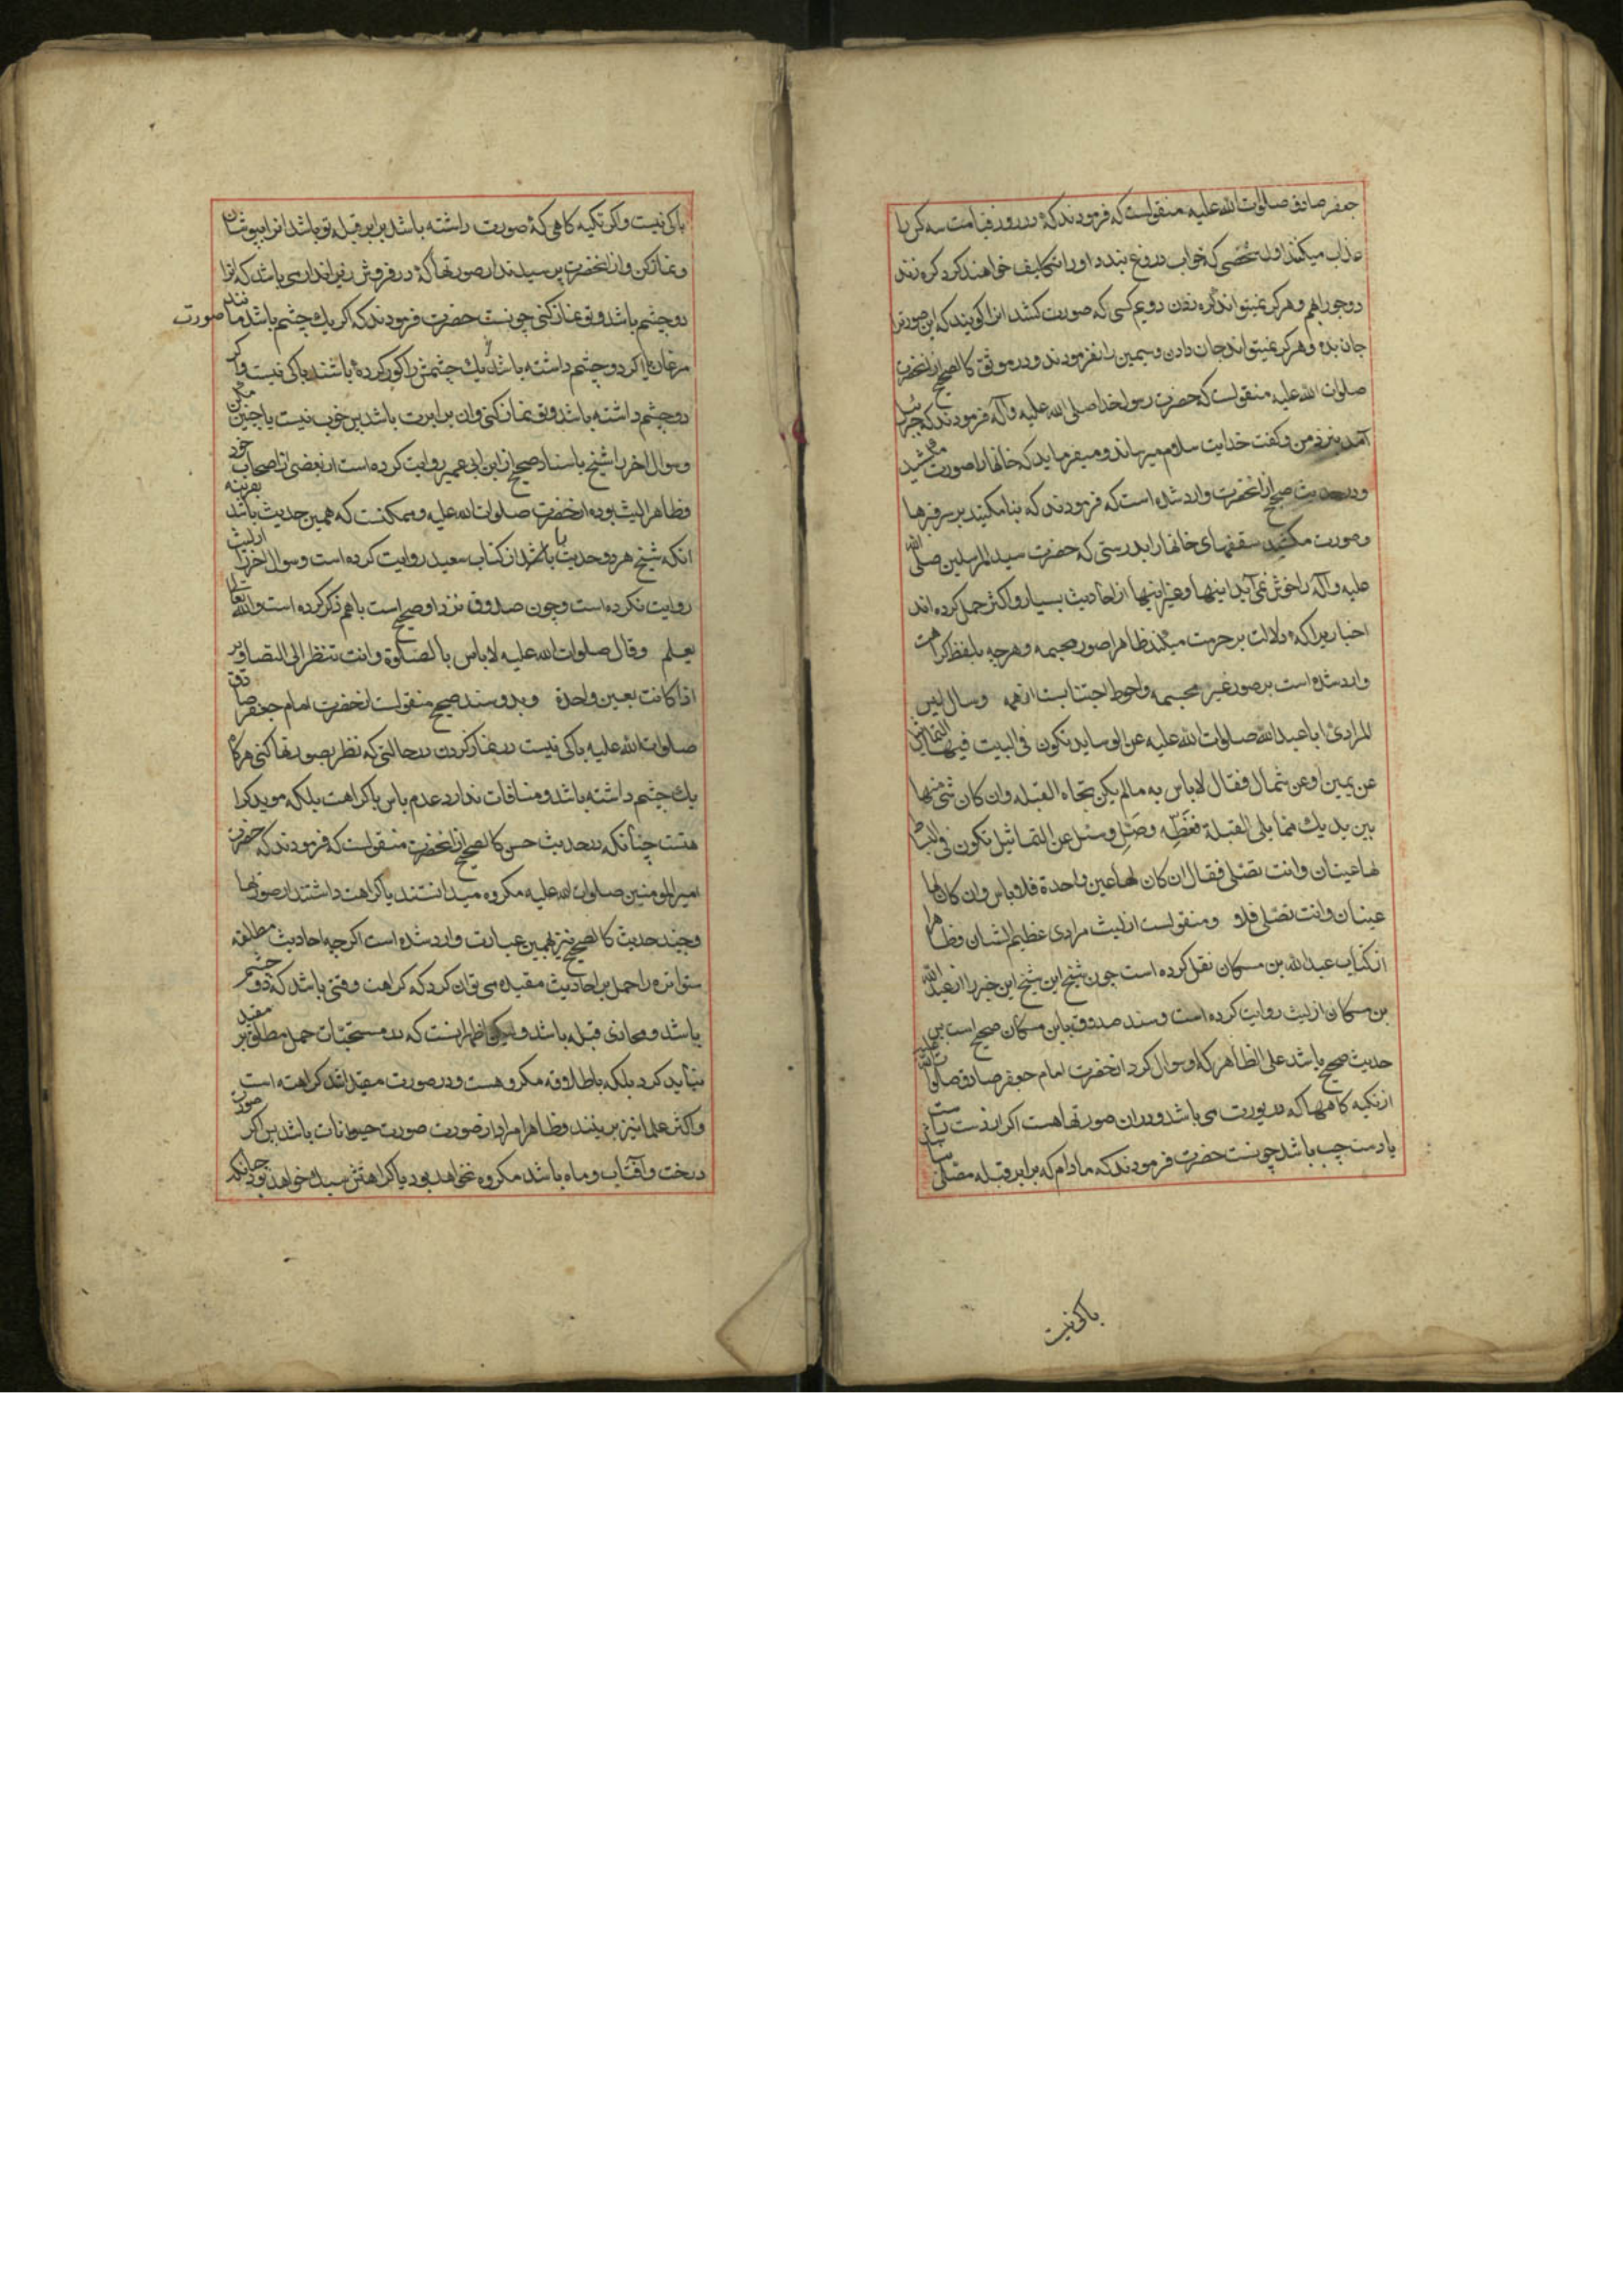 جعفر صادق صلوات الله علیه منقولست که فرمودند که در روز قیامت سه کس را
عذاب میکنند اول شخصی که خواب دروغ بندد او را تکلیف خواهند کرد که گره زند
دو جو را بهم و هرکز نمیتواند گره زدن دویم کسی که صورت کشد او را کویند که این صورترا
جان بده و هرکز نمیتواند جان دادن و سیمین را نفرمودند و در موثق کالصحیح از انحضرت
صلوات الله علیه منقولست که حضرت رسولخدا صلی الله علیه و آله فرمودند که جبرئیل
آمد بنزد من و کفت خدایت سلام میرساند و میفرماید که خانها را صورت مکشید
و در حدیث صحیح از انحضرت وارد شده است که فرمودند که بنا مکنید بر سر قبرها
و صورت مکشید سقفهای خانها را بدرستی که حضرت سید المرسلین صلی الله
علیه و آله را خوش نمی آید اینها و غیر اینها از احادیث بسیار و اکثر حمل کرده اند
اخباریرا که دلالت بر حرمت میکند ظاهرا صور مجسمه و هرچه بلفظ کراهت
وارد شده است بر صور غیر مجسمه و احوط اجتنابست از همه وسال لیث
المرادی ابا عبد الله صلوات الله علیه عن الوساید تکون فی البیت فیها التماثیل
عن یمین او عن شمال فقال لا باس به مالم یکن تجاه القبله وان کان شئ منها
بین یدیك مما یلی القبلة فغطه وصل وسئل عن التماثیل تکون فی البساط
لها عینان وانت تصلی فقال ان کان لها عین واحدة فلا باس وان کان لها
عینان وانت تصلی فلا و منقولست از لیث مرادی عظیم الشان و ظاهرا
از کتاب عبد الله بن مسکان نقل کرده است چون شیخ این شیخ این خبر را از عبد الله
بن مسکان از لیث روایت کرده است و سند صدوق باین مسکان صحیح است پس
حدیث صحیح باشد علی الظاهر که او سوال کرد از حضرت امام جعفر صادق صلوات الله علیه
از تکیه کاهها که در یورت می باشد و در ان صورتها هست اکر از دست راست
یا دست چپ باشد چونست حضرت فرمودند که مادام که برابر قبله مصلی نباشد
باکی نیست
باکی نیست و اکر تکیه کاهی که صورت داشته باشد برابر قبله تو باشد انرا بپوشان
و نماز کن و از انحضرت پرسیدند از صورتها که در فروش زیر انداز می باشد که انرا
دو چشم باشد و تو نماز کنی چونست حضرت فرمودند که اکر یك چشم باشد مانند صورت
مرغان یا اکر دو چشم داشته باشد یك چشمش را کور کرده باشند باکی نیست و اکر
دو چشم داشته باشد و تو نماز کنی و ان برابرت باشد پس خوب نیست یا چنین مکن
و سوال اخر را شیخ باسناد صحیح از ابن ابی عمیر روایت کرده است از بعضی از اصحاب خود
و ظاهرا لیث بوده از حضرت صلوات الله علیه و ممکنست که همین حدیث باشد بقرینه
انکه شیخ هر دو حدیث را از کتاب سعید روایت کرده است و سوال اخر را از لیث
روایت نکرده است و چون صدوق نزد او صحیح است با هم ذکر کرده است والله تعالی
یعلم وقال صلوات الله علیه لا باس بالصلوة وانت تنظر الی التصاویر
اذا کانت بعین واحدة و بدو سند صحیح منقولست از حضرت امام جعفر صادق
صلوات الله علیه باکی نیست در نماز کردن در حالتی که نظر بصورتها کنی هرکاه
یك چشم داشته باشد و منافات ندارد عدم باس با کراهت بلکه موید کراهت
هست چنانکه در حدیث حسن کالصحیح از انحضرت منقولست که فرمودند که حضرت
امیر المومنین صلوات الله علیه مکروه میدانستند یا کراهت داشتند از صورتها
و چند حدیث کالصحیح نیز بهمین عبارت وارد شده است اکرچه احادیث مطلقه
متواتره را حمل بر احادیث مقیده می توان کرد که کراهت وقتی باشد که دو چشم
باشد و محاذی قبله باشد ولیکن اظهر انست که در مستحبات حمل مطلق بر مقید
نباید کرد بلکه باطلاقه مکروهست و در صورت مقید اشد کراهته است
و اکثر علما نیز برینند و ظاهرا مراد از صورت صورت حیوانات باشد پس اکر صورت
درخت و آفتاب و ماه باشد مکروه نخواهد بود یا کراهتش سبك خواهد بود چنانکه